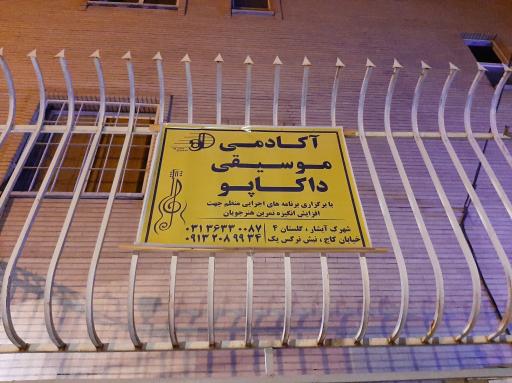 آکادمی
موسیقی
داکاپو
با برگزاری برنامه های اجرایی منظم جهت
افزایش انگیزه تمرین هنرجویان
شهرک آبشار، گلستان ۴
خیابان کاج، نبش نرگس یک
۰۳۱ ۳۶۳۳ ۰۰۸۷
۰۹۱۳ ۲۰۸ ۹۹ ۳۴